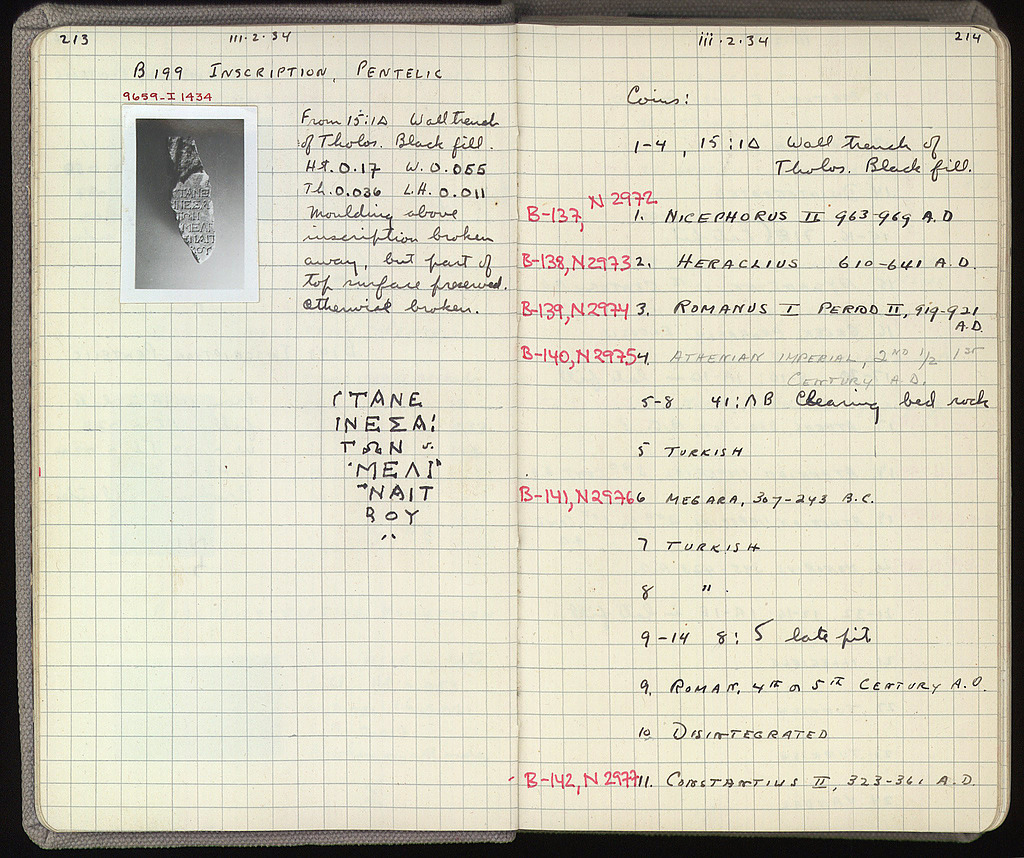 213
III · 2 · 34
B 199 INSCRIPTION, PENTELIC
9659-I 1434
From 15:ΙΔ Wall trench
of Tholos. Black fill.
Ht. 0.17 W. 0.055
Th. 0.036 L.H. 0.011
Moulding above
inscription broken
away, but part of
top surface preserved.
otherwise broken.
ΤΑΝΕ
ΙΝΕΣΑ
ΤΩΝ
ΜΕΛΙ
ΝΑΙΤ
ΒΟΥ
iii · 2 · 34
214
Coins:
1-4, 15:ΙΔ Wall trench of
Tholos. Black fill.
B-137, N 2972 1. NICEPHORUS II 963-969 A.D
B-138, N2973 2. HERACLIUS 610-641 A.D.
B-139, N2974 3. ROMANUS I PERIOD II, 919-921
A.D.
B-140, N2975 4. ATHENIAN IMPERIAL, 2ND 1/2 1ST
CENTURY A.D.
5-8 41:ΛΒ Clearing bed rock
5 TURKISH
B-141, N2976 6 MEGARA, 307-243 B.C.
7 TURKISH
8 " .
9-14 8:5 late pit
9. ROMAN, 4TH or 5TH CENTURY A.D.
10 DISINTEGRATED
B-142, N2977 11. CONSTANTIUS II, 323-361 A.D.